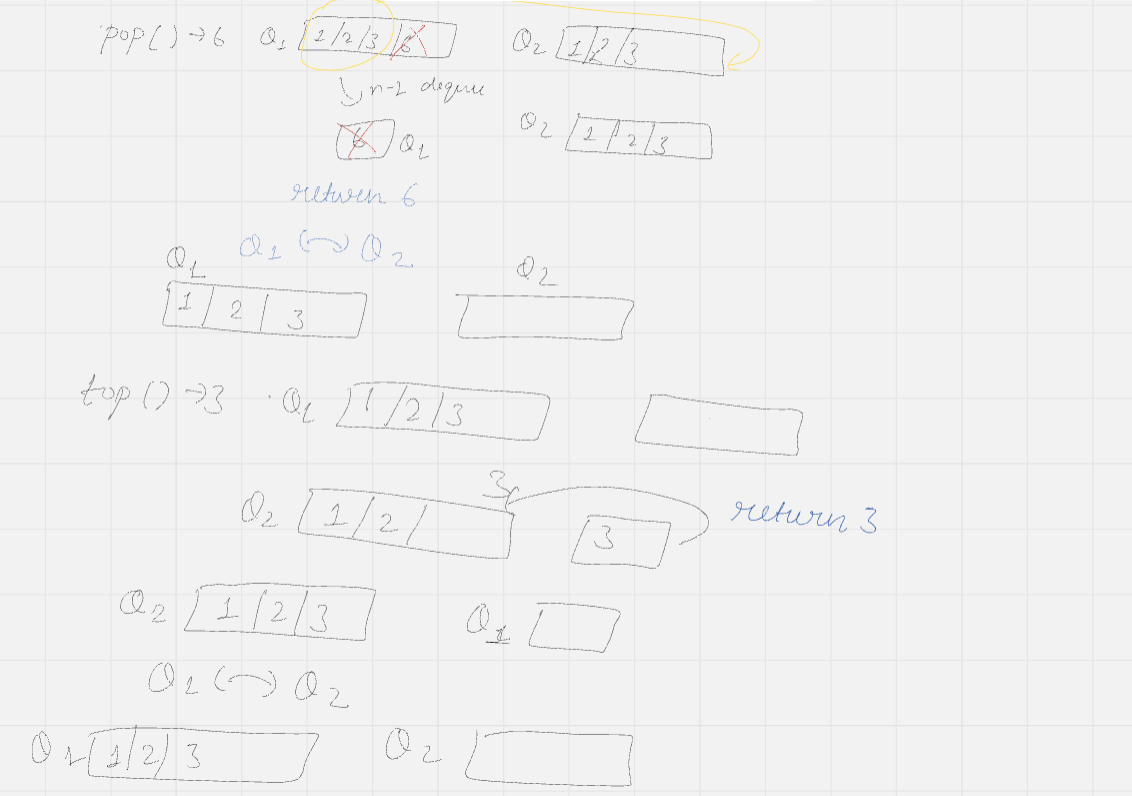 pop() → 6 Q1 1 2 3 6 Q2 1 2 3
n-1 deque
6 Q1 Q2 1 2 3
return 6
Q1 ↔ Q2
Q1 Q2
1 2 3
top() → 3 Q1 1 2 3
3
Q2 1 2 3 return 3
Q2 1 2 3 Q1
Q1 ↔ Q2
Q1 1 2 3 Q2